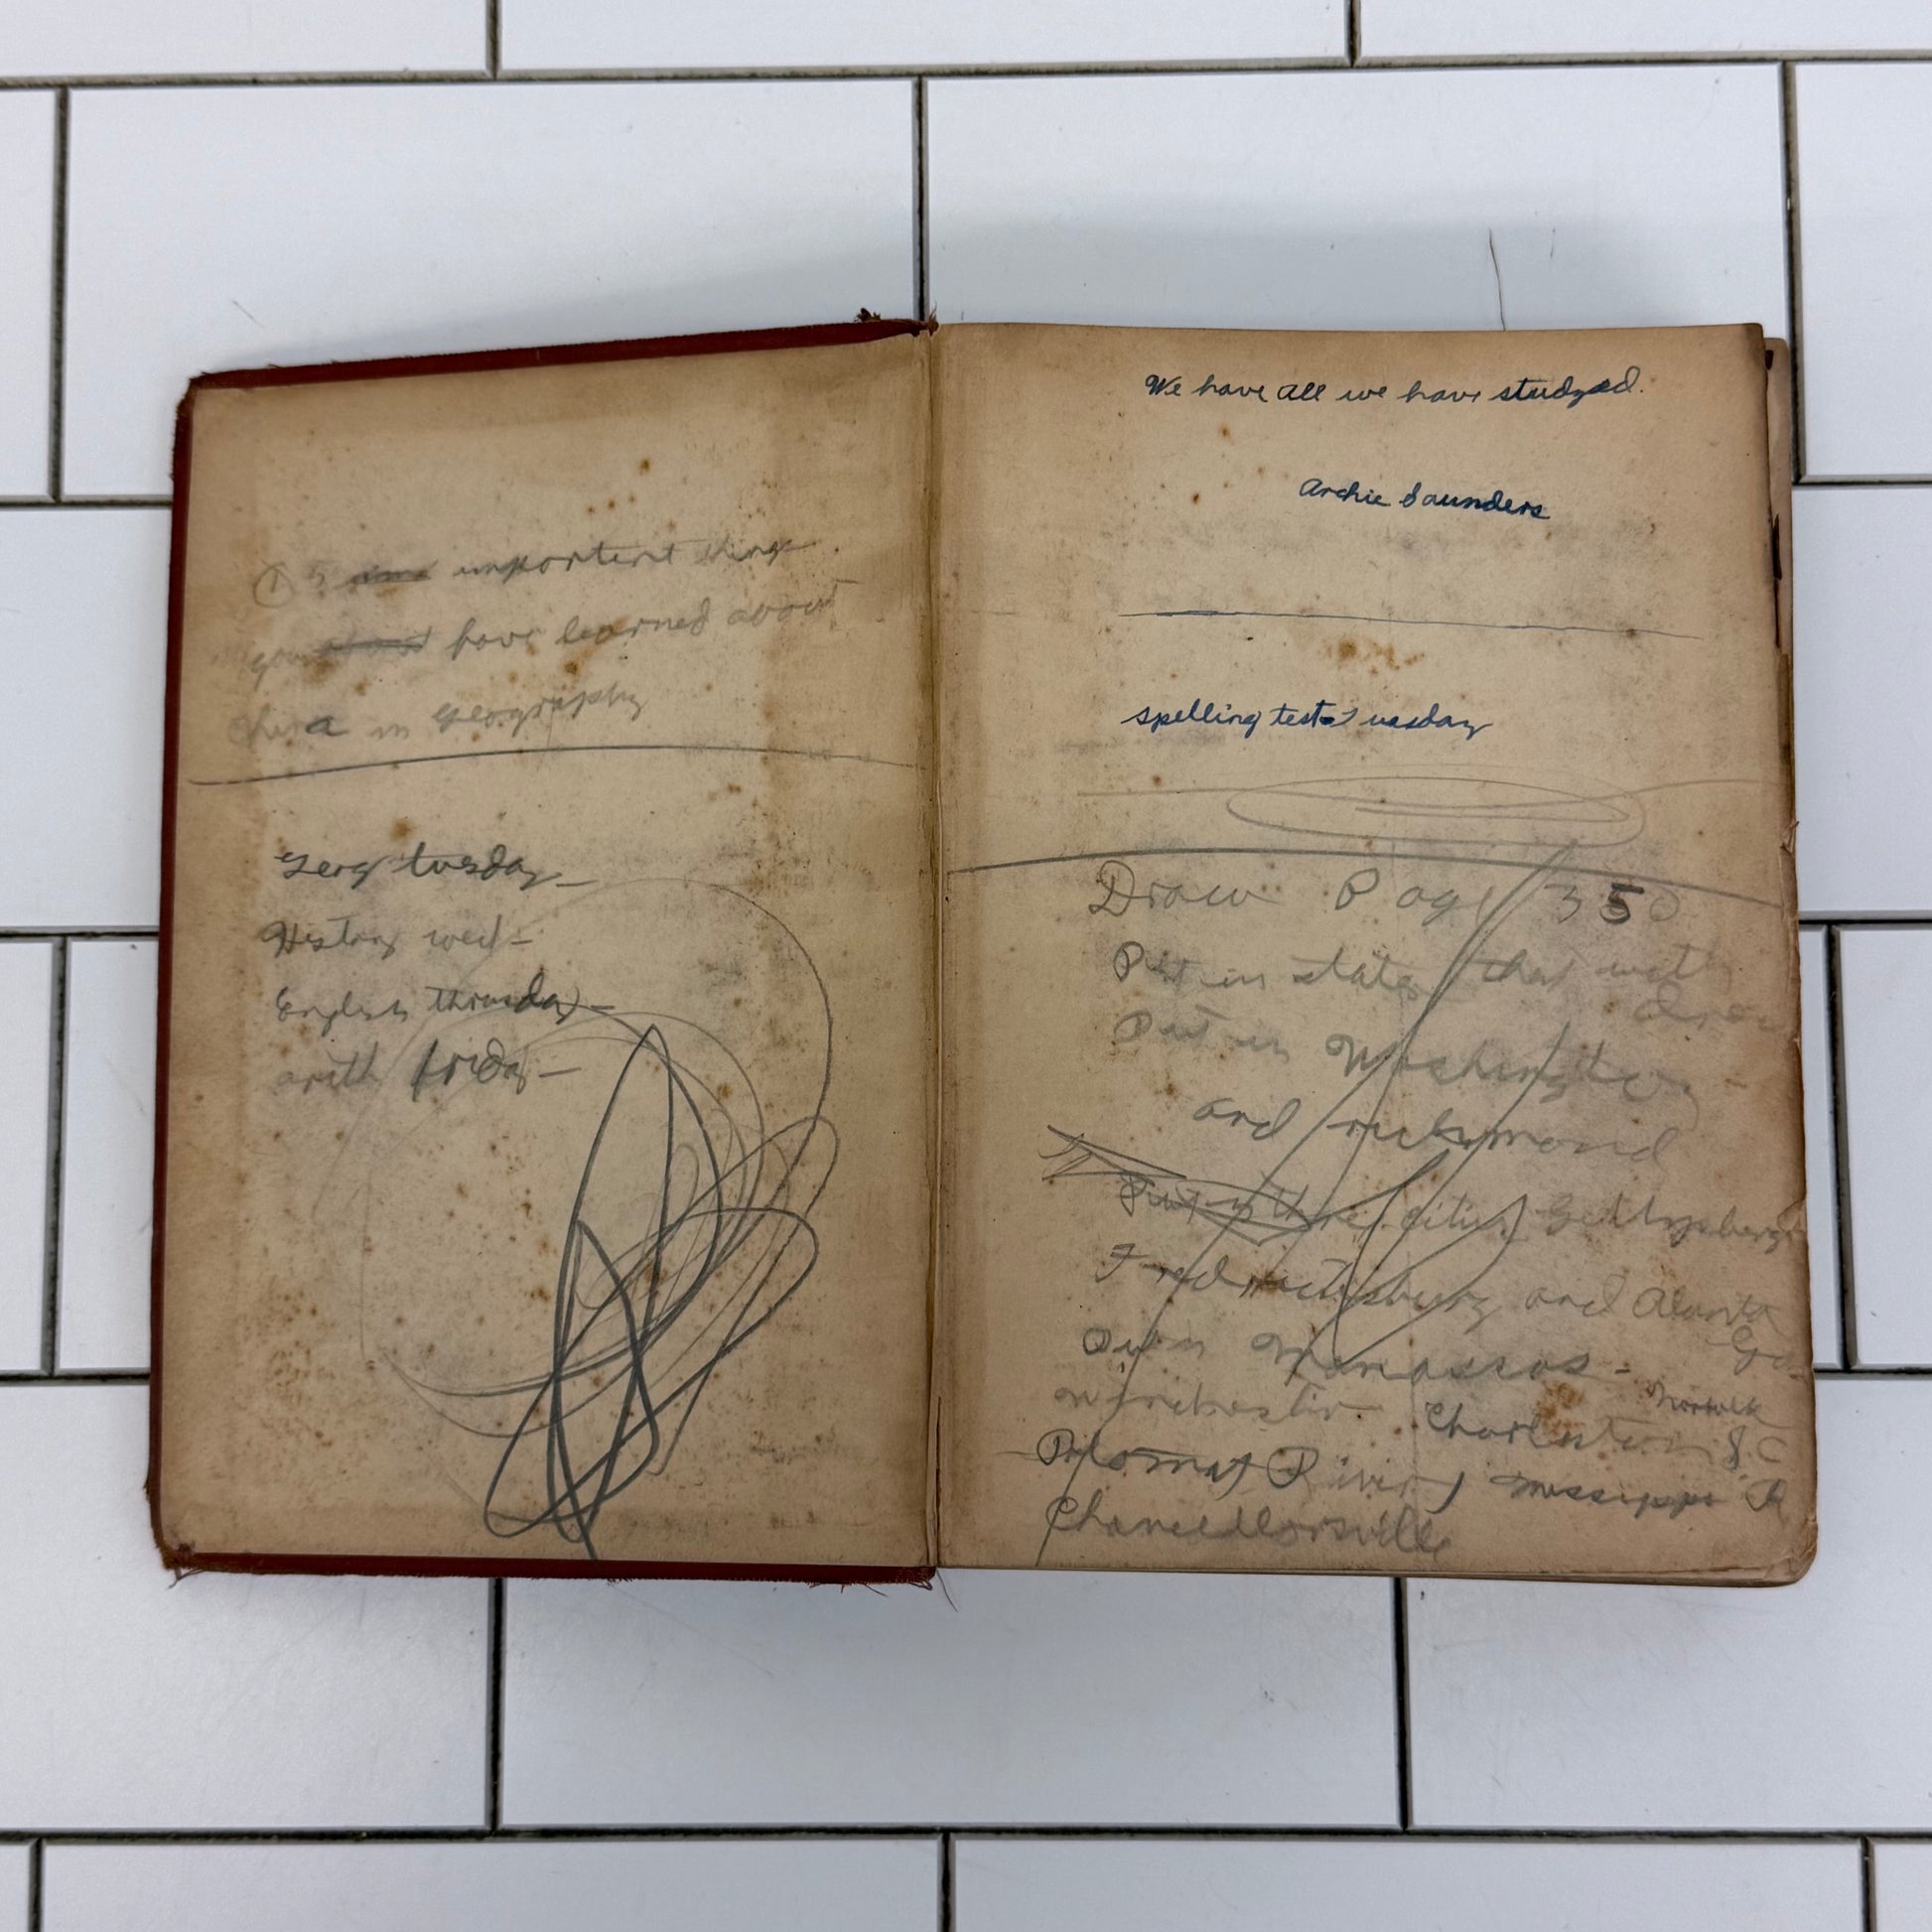 ① 5 important things
you have learned about
china in Geography
Geog tusday -
History wed -
English thrusday -
arith friday -
We have all we have studyed.
Archie Saunders
spelling test Tuesday
Draw Page 350
Put in states that
draw
Put in Washington
and richmond
Put in three cities Gettysburg
Fredricksburg and Alanta
Ga.
Put in Manassas -
Norfolk
Winchester Charleston S C
Potomac River, Missippi R
Chancellorsville